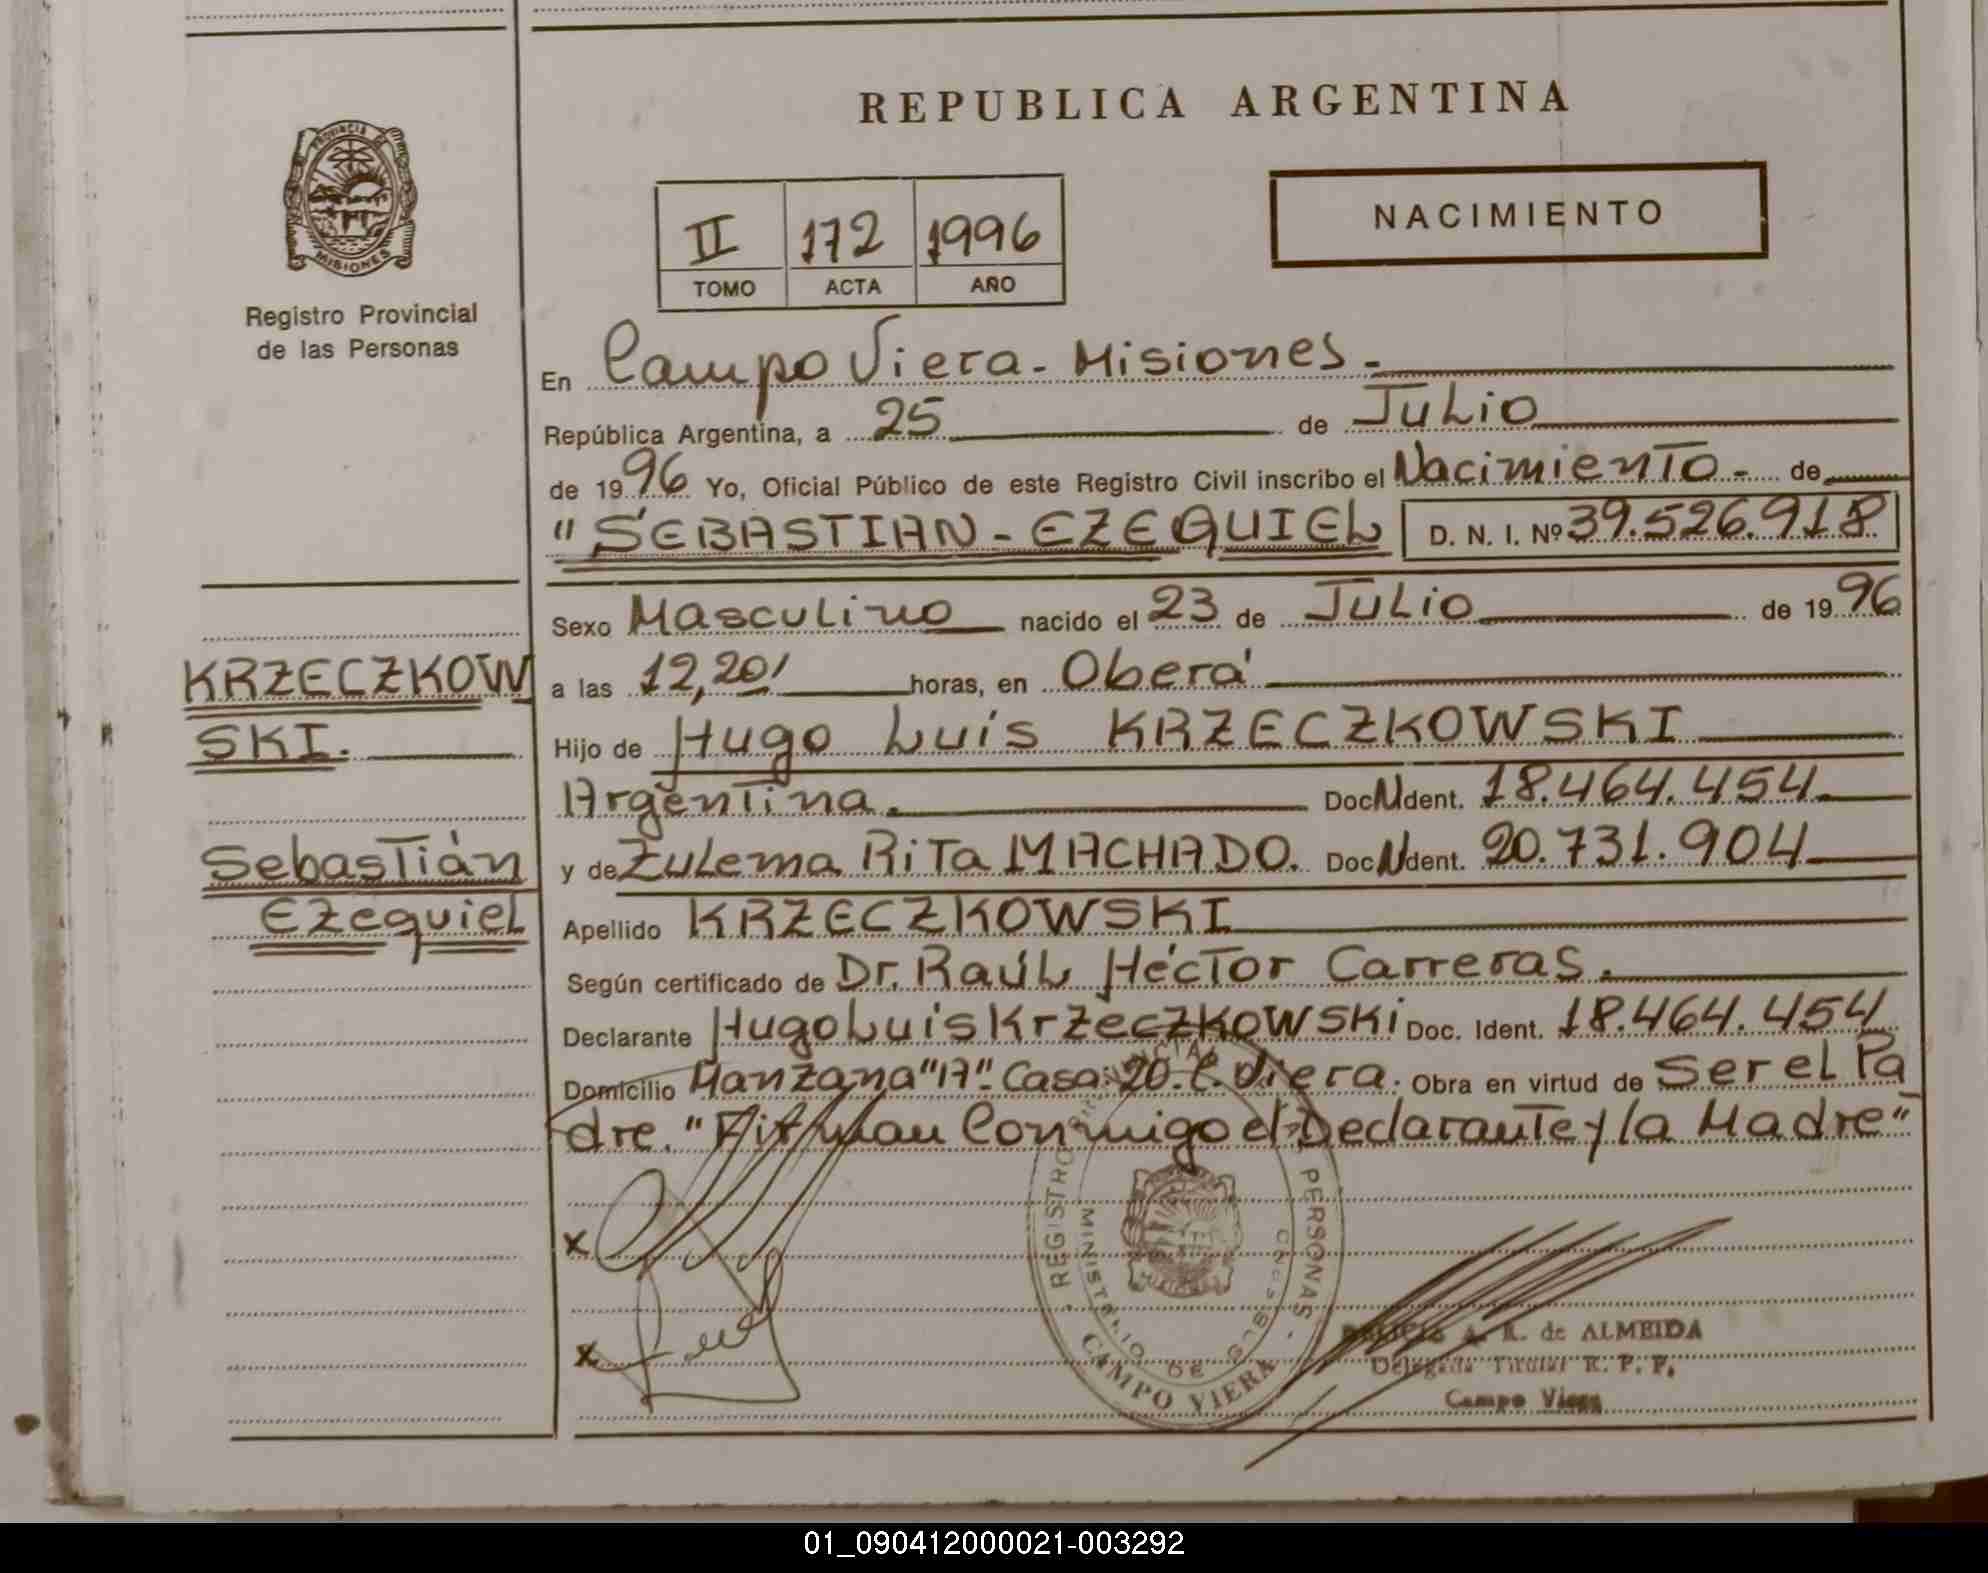 REPUBLICA ARGENTINA
PROVINCIA DE
MISIONES
Registro Provincial
de las Personas
II 172 1996
TOMO ACTA AÑO
NACIMIENTO
En Campo Viera - Misiones.
República Argentina, a 25 de Julio
de 1996 Yo, Oficial Público de este Registro Civil inscribo el Nacimiento - de
"SEBASTIAN - EZEQUIEL D. N. I. Nº 39.526.918
Sexo Masculino nacido el 23 de Julio de 1996
KRZECZKOW
SKI.
Sebastián
Ezequiel
a las 12,20' horas, en Oberá
Hijo de Hugo Luis KRZECZKOWSKI
Argentina. Doc. N Ident. 18.464.454
y de Zulema Rita MACHADO. Doc. N Ident. 20.731.904
Apellido KRZECZKOWSKI
Según certificado de Dr. Raúl Héctor Carreras.
Declarante Hugo Luis Krzeczkowski Doc. Ident. 18.464.454
Domicilio Manzana "A". Casa: 20. C. Viera. Obra en virtud de Ser el Pa
dre. "Firman Conmigo el Declarante y la Madre"
x
x
REGISTRO PERSONAS
MINISTERIO DE
CAMPO VIERA
A. R. de ALMEIDA
Delegada Titular R. P. P.
Campo Viera
01_090412000021-003292